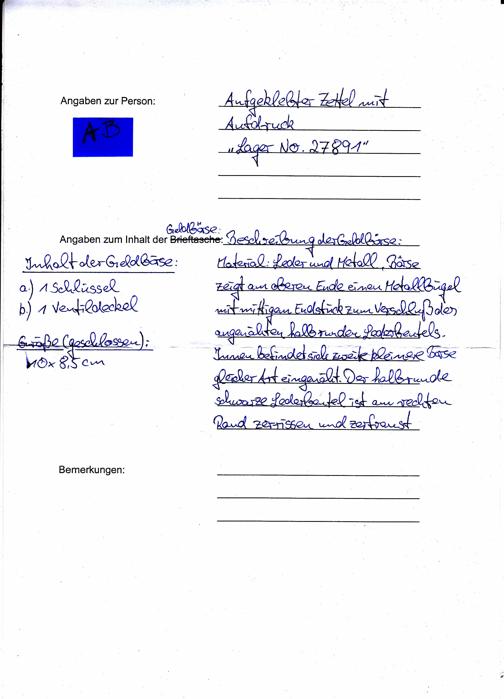 Angaben zur Person:
Aufgeklebter Zettel mit
Aufdruck
"Lager No. 27891"
AB
Geldbörse:
Angaben zum Inhalt der Brieftasche:
Beschreibung der Geldbörse:
Inhalt der Geldbörse:
a) 1 Schlüssel
b) 1 Ventildeckel
Größe (geschlossen):
10 x 8,5 cm
Material: Leder und Metall, Börse
zeigt am oberen Ende einen Metallbügel
mit mittigen Endstück zum Verschluß des
angenähten halbrunden Lederbeutels.
Innen befindet sich zweite kleinere Börse
gleicher Art eingenäht. Der halbrunde
schwarze Lederbeutel ist am rechten
Rand zerrissen und zerfranst
Bemerkungen: